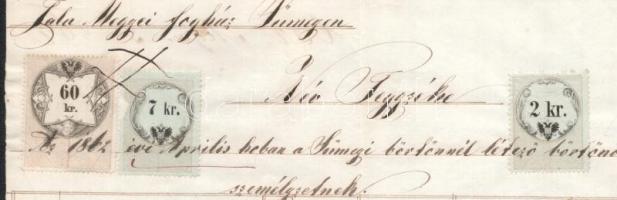 Zala Megyei fogház Sümegen
Név Jegyzéke
60 kr.
7 kr.
2 kr.
Az 1862 évi Április hoban a Sümegi börtönnél létező börtön
személyzetnek.